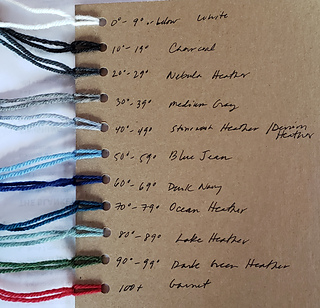 0°- 9° or below White
10°- 19° Charcoal
20°- 29° Nebula Heather
30°- 39° medium Gray
40°- 49° Stonewash Heather / Denim
Heather
50°- 59° Blue Jean
60°- 69° Dusk Navy
70°- 79° Ocean Heather
80°- 89° Lake Heather
90°- 99° Dark Green Heather
100+ Garnet